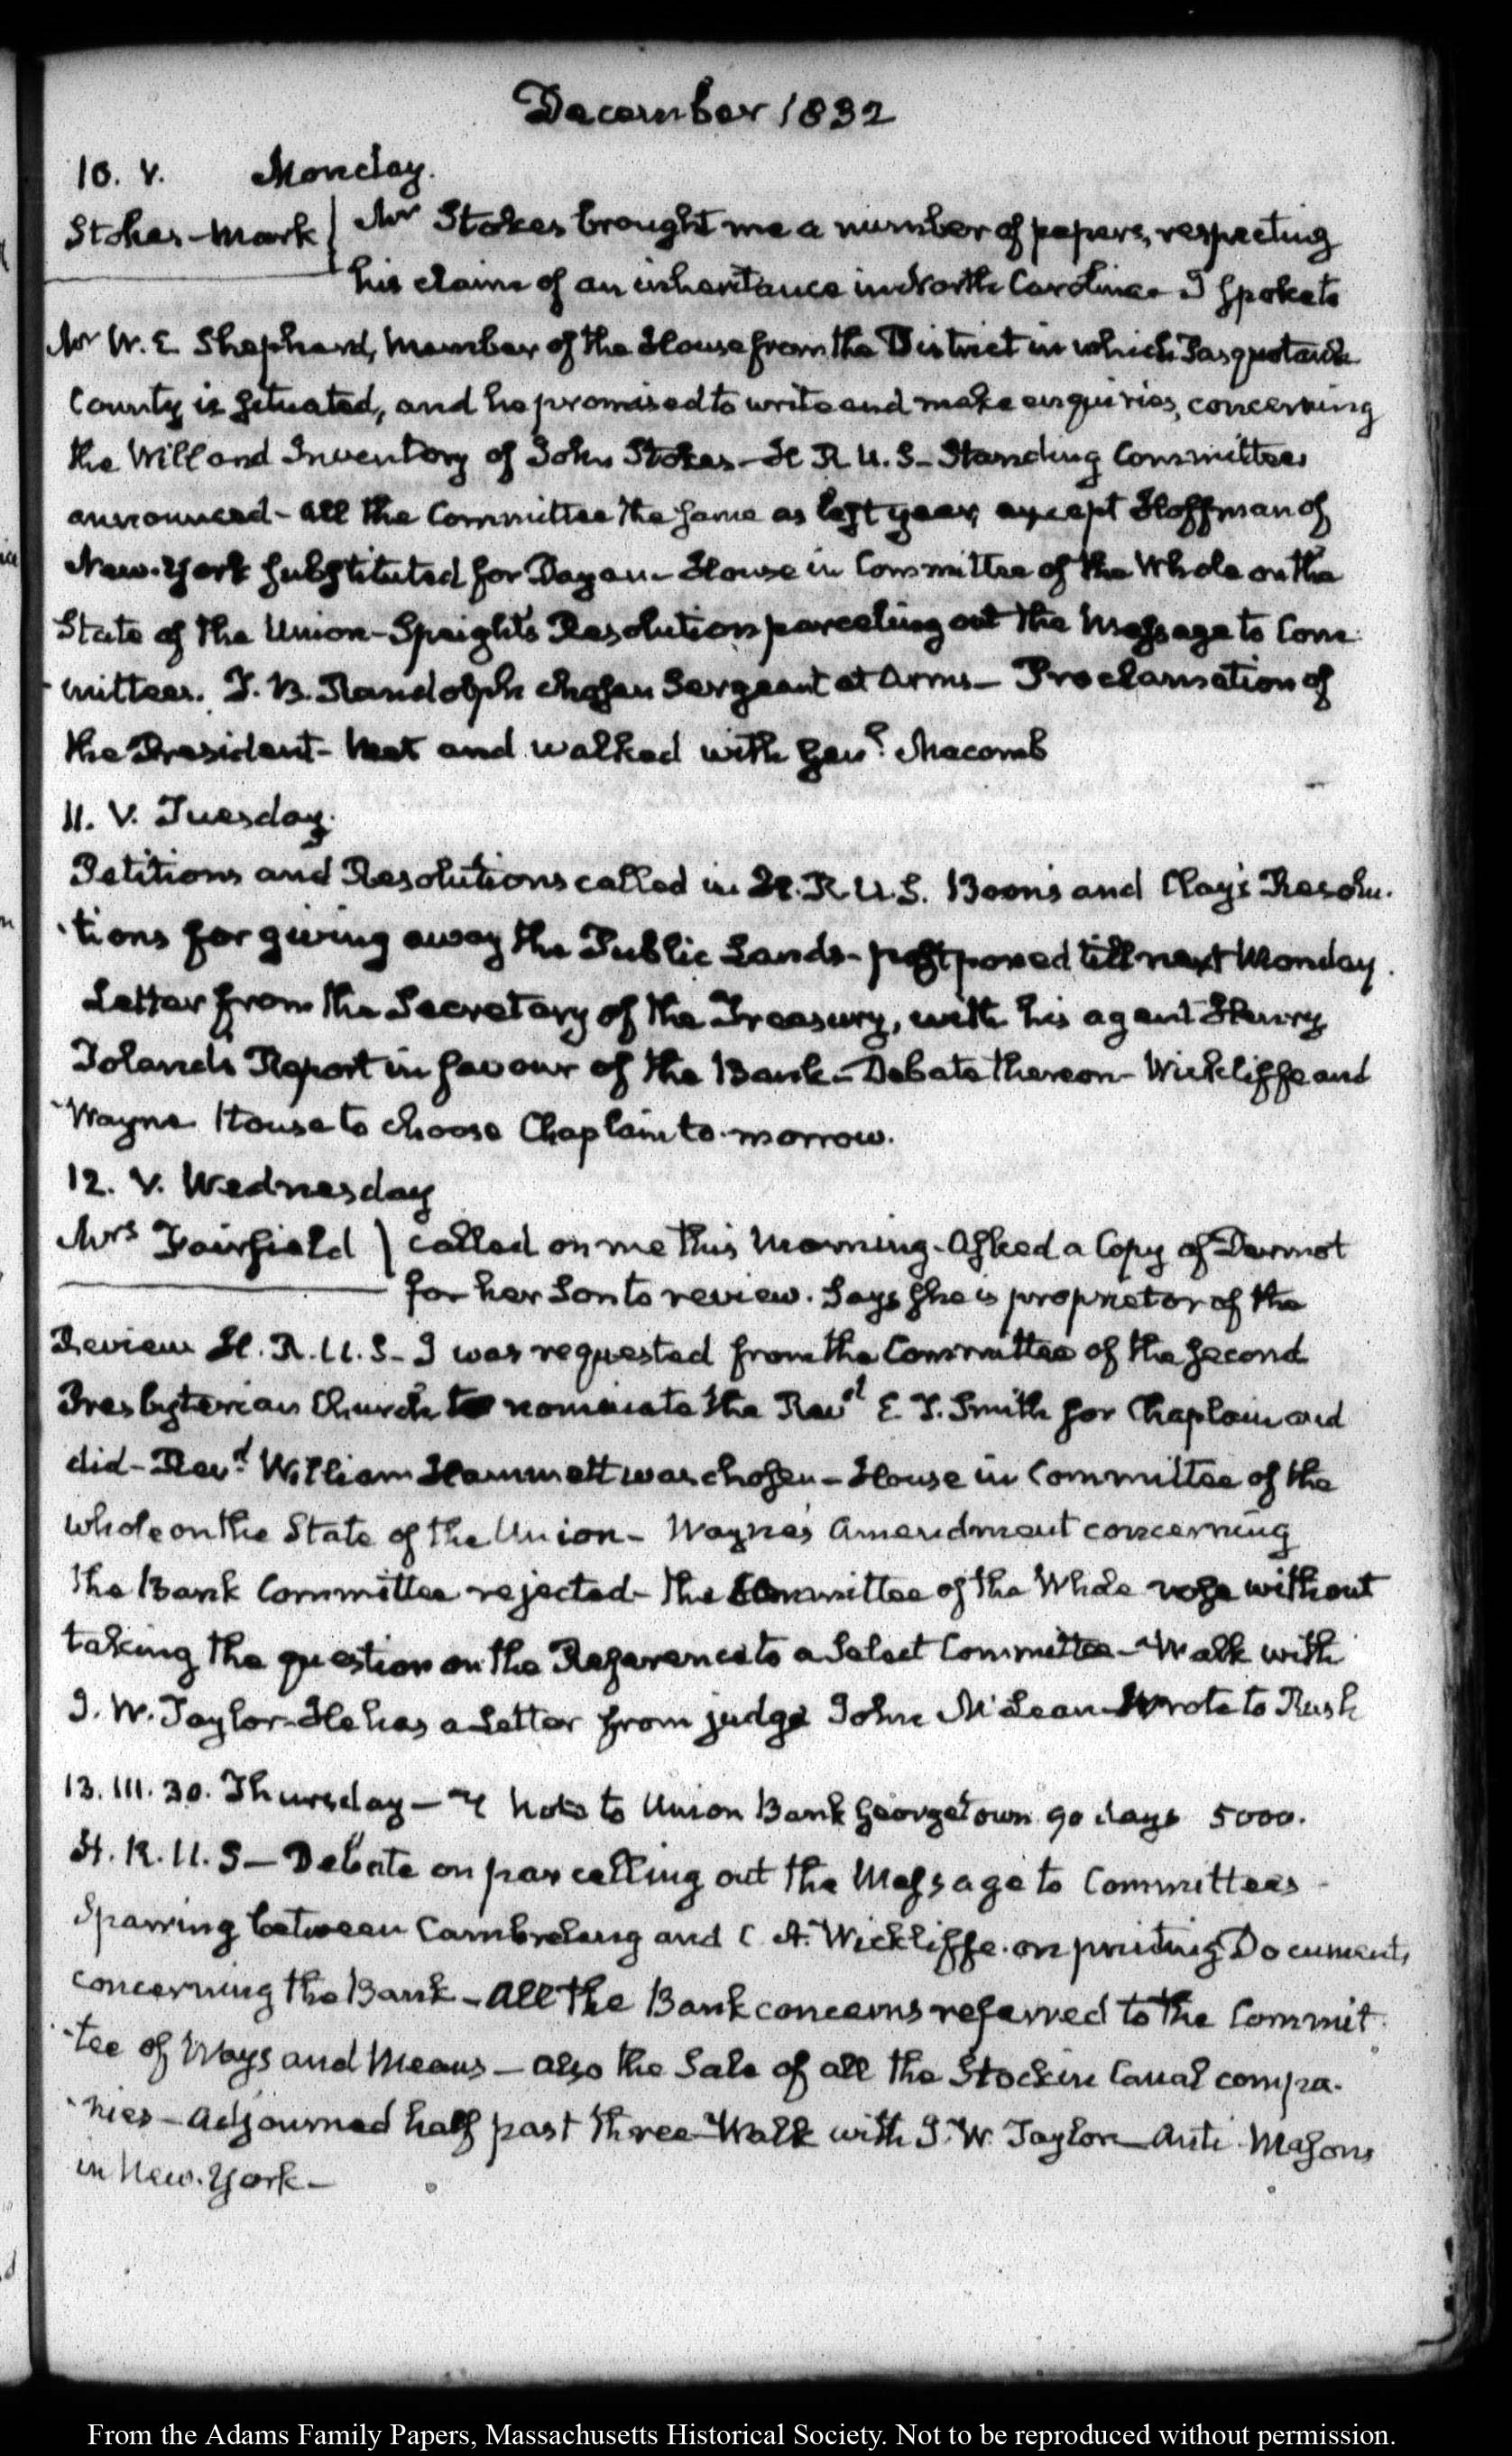 December 1832
10. V. Monday.
Stokes-Mark | Mr Stokes brought me a number of papers, respecting
his claim of an inheritance in North Carolina. I spoke to
Mr W. E. Shephard, Member of the House from the District in which Pasquotank
County is situated, and he promised to write and make enquiries, concerning
the Will and Inventory of John Stokes - H. R. U. S. - Standing Committees
announced - all the Committee the same as last year, except Hoffman of
New-York substituted for Dayan - House in Committee of the Whole on the
State of the Union - Speight's Resolution parceling out the Message to Com-
-mittees. T. B. Randolph chosen Sergeant at Arms - Proclamation of
the President - Met and walked with Genl. Macomb
11. V. Tuesday.
Petitions and Resolutions called in H. R. U. S. Boon's and Clay's Resolu-
-tions for giving away the Public Lands - postponed till next Monday.
Letter from the Secretary of the Treasury, with his agent Henry
Toland's Report in favour of the Bank - Debate thereon - Wickliffe and
Wayne House to choose Chaplain to-morrow.
12. V. Wednesday
Mrs Fairfield | called on me this Morning. Asked a Copy of Dermot
for her Son to review. Says she is proprietor of the
Review H. R. U. S - I was requested from the Committee of the second
Presbyterian Church to nominate the Revd E. T. Smith for Chaplain and
did - Revd. William Hammett was chosen - House in Committee of the
whole on the State of the Union - Wayne's amendment concerning
the Bank Committee rejected - the Committee of the Whole rose without
taking the question on the Reference to a Select Committee - Walk with
J. W. Taylor - He has a Letter from judge John McLean - Wrote to Rush
13. III. 30. Thursday - Note to Union Bank Georgetown 90 days 5000.
H. R. U. S - Debate on parcelling out the Message to Committees -
Sparring between Cambreleng and C. A. Wickliffe on printing Documents
concerning the Bank - All the Bank concerns referred to the Commit-
-tee of Ways and Means - also the Sale of all the Stock in Canal compa-
-nies - Adjourned half past three - Walk with J. W. Taylor - Anti-Masons
in New-York -
From the Adams Family Papers, Massachusetts Historical Society. Not to be reproduced without permission.